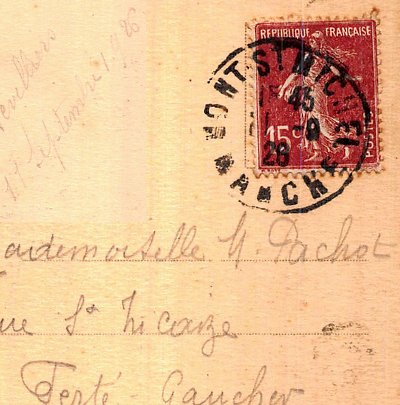 11 Septembre 1926
RÉPUBLIQUE FRANÇAISE
15
POSTES
MONT ST MICHEL
45
26
MANCHE
ademoiselle M. Pachot
ue St Nicaize
Ferté-Gaucher